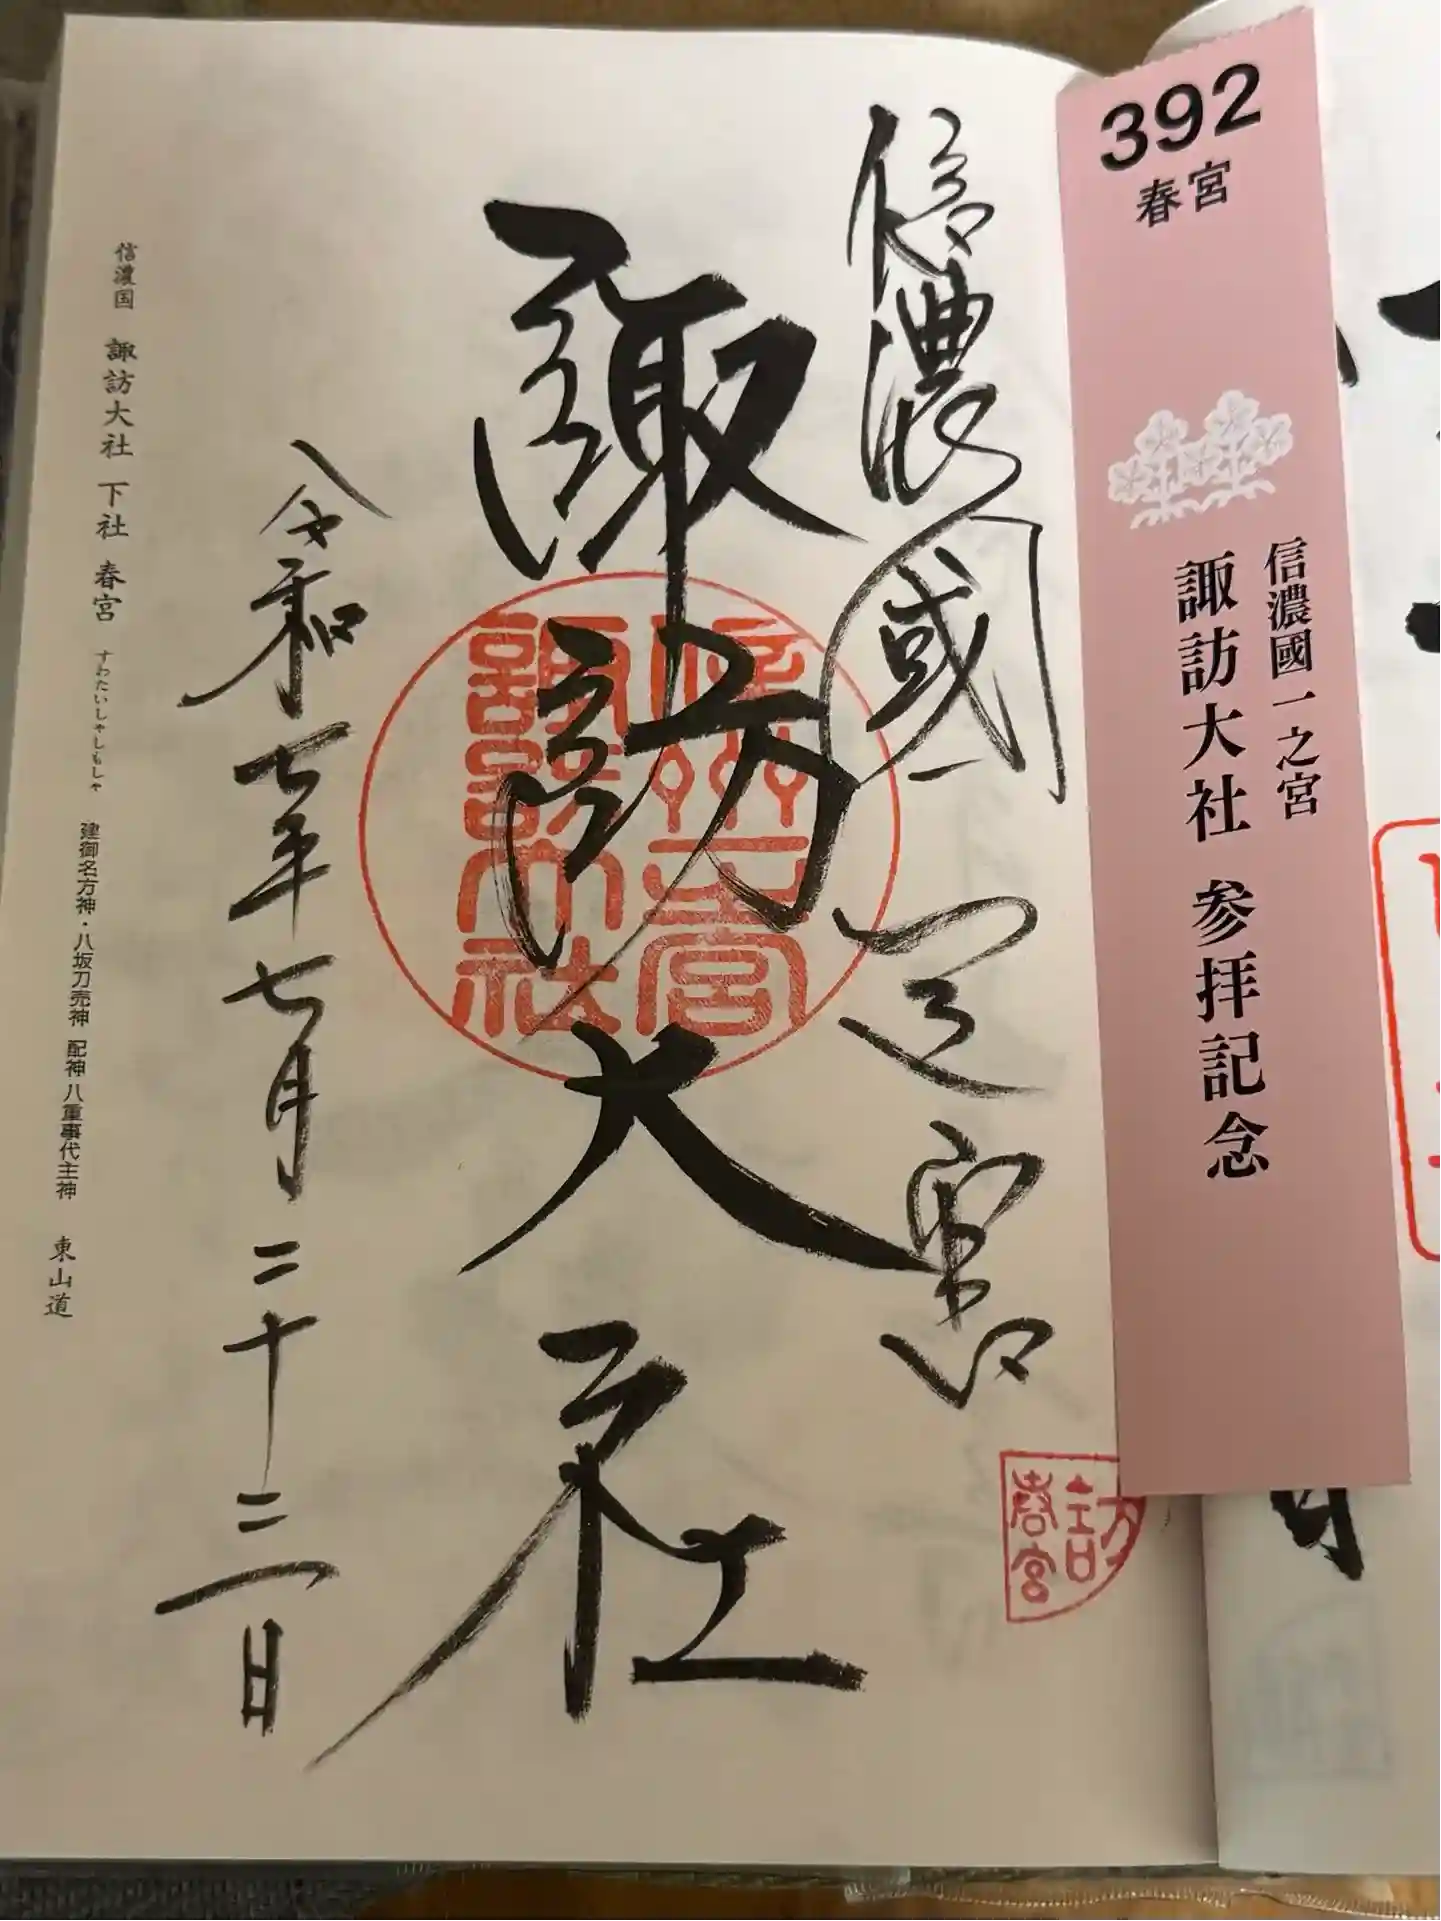 392
春宮
信濃國一之宮
諏訪大社 参拝記念
信濃國一之宮
諏訪大社
令和七年七月二十三日
訪
春宮
信濃国 諏訪大社 下社 春宮 すわたいしゃしもしゃ 建御名方神・八坂刀売神 配神 八重事代主神 東山道